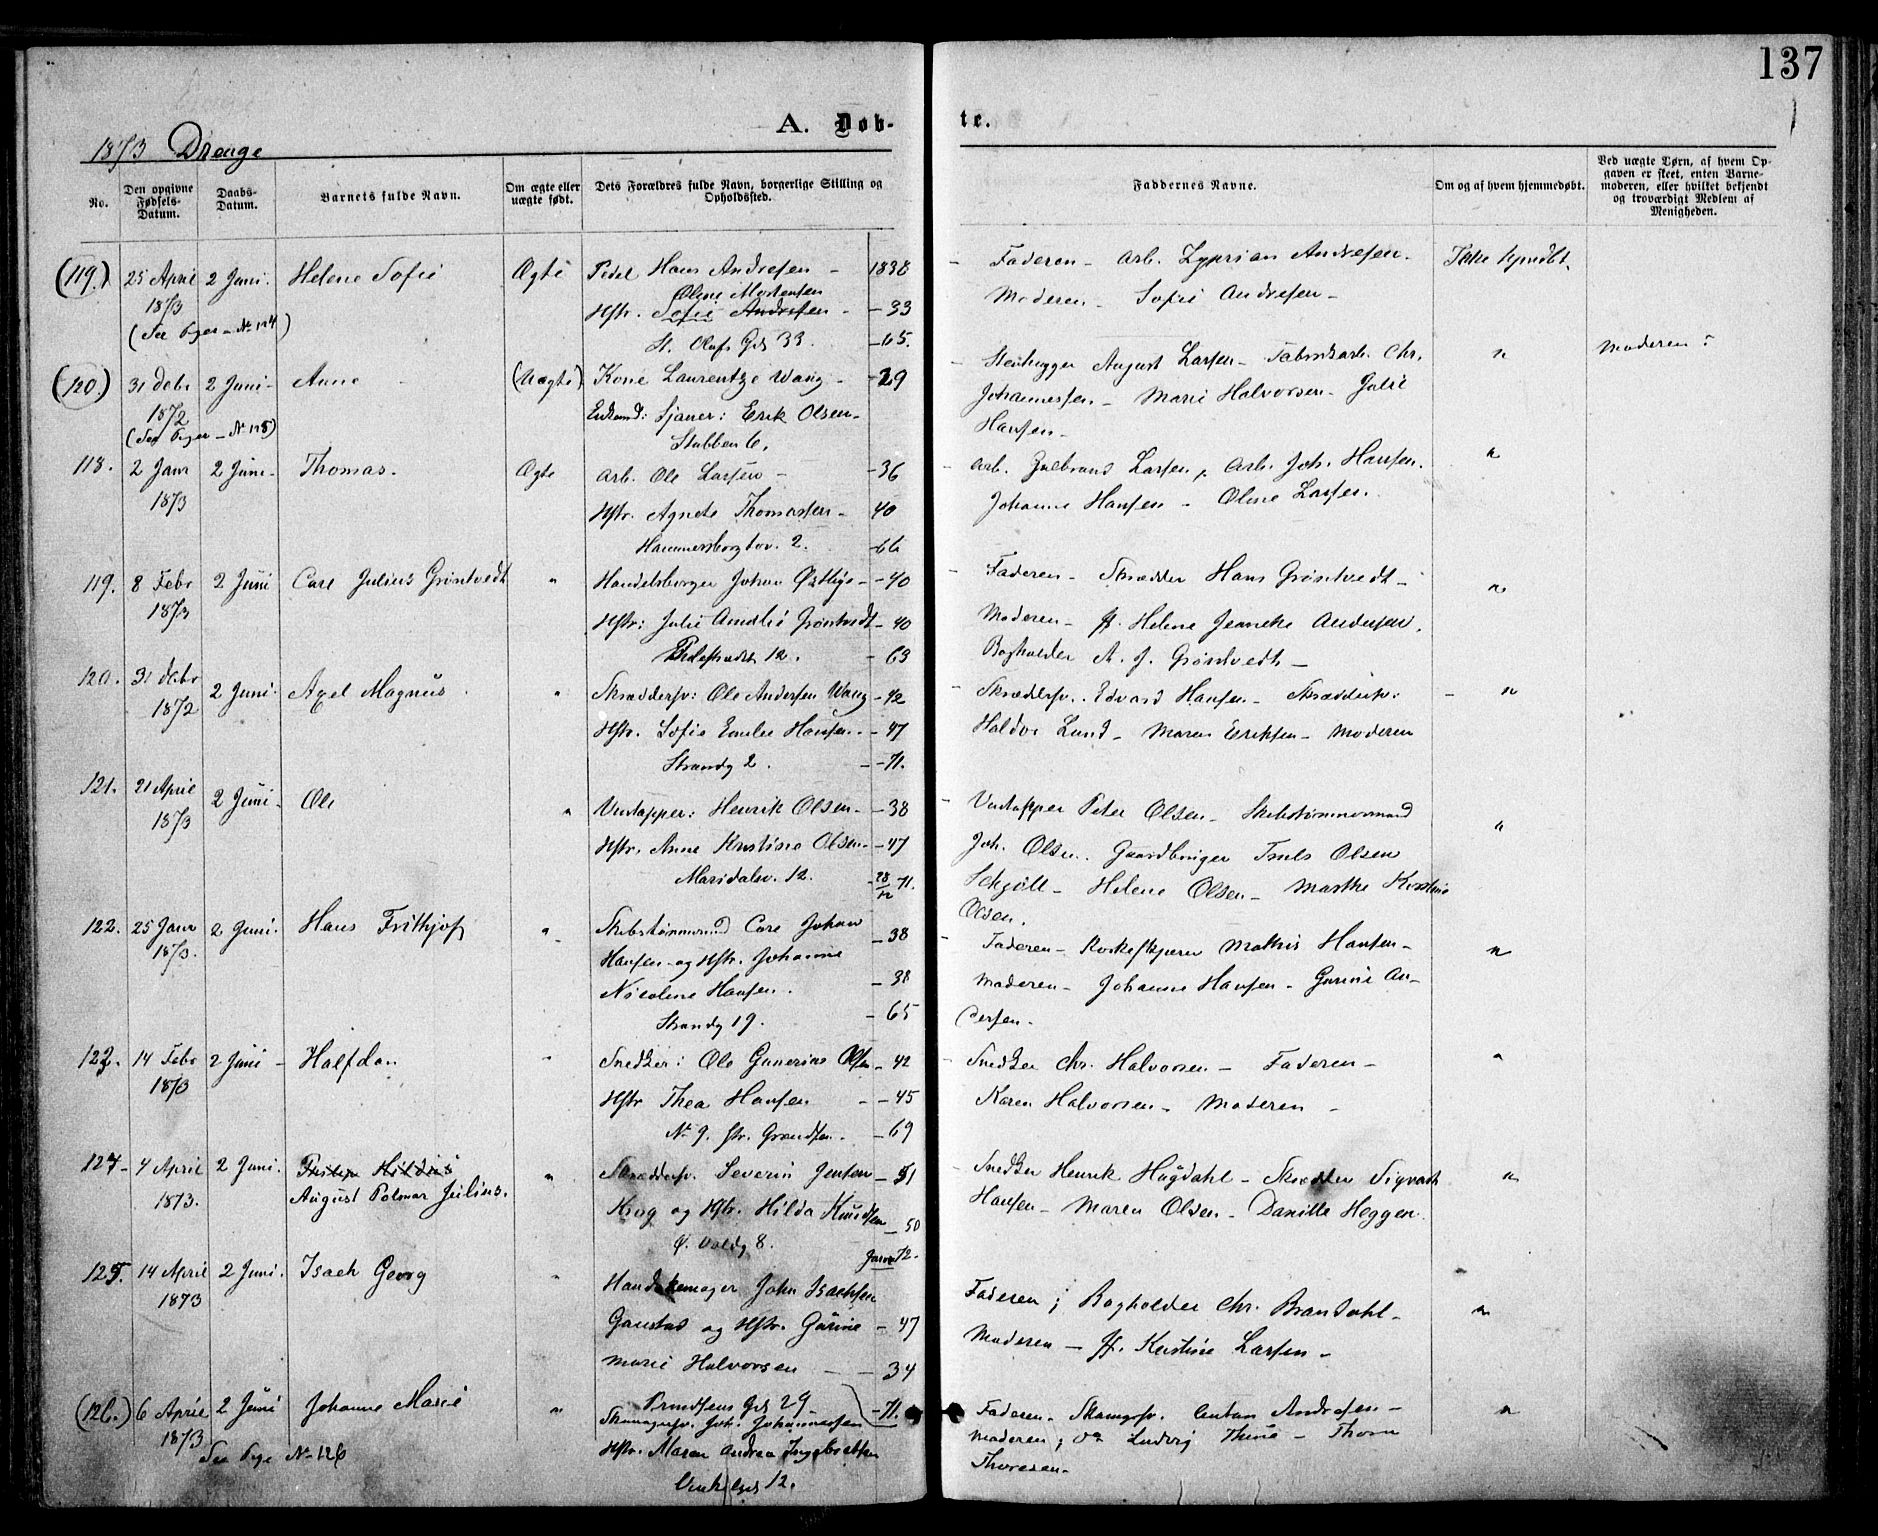 137
A. Døb-
te.
1873 Drenge
No.
Den opgivne Fødsels-Datum.
Daabs-Datum.
Barnets fulde Navn.
Om ægte eller uægte født.
Dets Forældres fulde Navn, borgerlige Stilling og Opholdssted.
Faddernes Navne.
Om og af hvem hjemmedøbt.
Ved uægte Børn, af hvem Op-
gaven er skeet, enten Barne-
moderen, eller hvilket bekjendt
og troværdigt Medlem af
Menigheden.
(119.) 25 April 2 Juni. Helene Sofie Ægte Pedel Hans Andresen - 1838 - Faderen - Arb. Andresen. Ikke kjendt.
1873 Oline Mortensen Moderen - Sofie Andresen -
Hstr. Sofie Andresen - -33
(See Piger - No 124) St. Olafs Gd 33. -65.
(120.) 31 Debr 2 Juni - Anne (Uægte) Kone Laurentze Wang - -29 - Stenhugger August Larsen - Fabrikarb. Chr. " Moderen.
1872 Enkemd: Sjauer: Erik Olsen - Johannessen - Marie Halvorsen - Julie
(See Piger - No 125) Stubben 6. Hansen -
118. 2 Janr 2 Juni - Thomas. Ægte Arb. Ole Larsen - -36 - Arb. Larsen, Arb. Joh. Hansen. "
1873 Hstr. Agnete Thomassen - 40 Johanne Hansen - Oline Larsen.
Hammersborgtov. 2. -66
119. 8 Febr 2 Juni Carl Julius Grøntvedt " Handelsborger Johan - -40 - Faderen - Skrædder Hans Grøntvedt - "
1873 Hstr: Julie Amalie Grøntvedt - 40 Moderen - Jf. Helene Andersen.
Pilestrædet 12. -63 Bogholder A. J. Grøntvedt -
120. 31 Debr 2 Juni. Axel Magnus " Skræddersv: Ole Andersen Wang -42 - Skræddersv. Edvard Hansen - Skræddersv: - "
1872 Hstr. Sofie Emilie Hansen - -47 Haldor Lund - Maren Eriksen - Moderen
Strandg 2. -71.
121. 21 April 2 Juni - Ole " Vintapper: Henrik Olsen - -38 - Vintapper Peter Olsen - Skibstømmermand "
1873 Hstr. Anne Kristine Olsen - -47 Joh. Olsen. Gaardbruger Olsen
Maridalsv. 12. 28/12 71. - Helene Olsen - Marthe Kristine
Olsen.
122. 25 Janr 2 Juni. Hans Frithjof " Skibstømmermd Carl Johan -38
1873. Hansen og Hstr. Johanne - Faderen - Mathis Hansen - "
Nicoline Hansen. -38 Moderen - Johanne Hansen - Gurine An-
Strandg 19. -65 dersen.
123. 14 Febr 2 Juni - Halfdan " Snedker: Ole Gunerius Olsen -42 - Snedker Chr. Halvorsen - Faderen - "
1873 Hstr Thea Hansen -45 Karen Halvorsen - Moderen -
No 9. str. Grændsen. -69
124 - 4 April 2 Juni. Hildus " Skræddersv. Severin Jensen -51 - Snedker Henrik Hagdahl - Skrædder Sigvart "
1873. August Palmar Julius. Krog og Hstr. Hilda Knudsen -50 Hansen - Maren Olsen - Danille Heggen.
Ø. Voldg 8. Janr 72.
125. 14 April 2 Juni. Isach Georg " Handskemager John Isachsen Faderen; Bogholder Chr. Brandahl - "
1873 Gaustad og Hstr. Gurine -47 Moderen - Jf. Kristine Larsen -
Marie Halvorsen -34
Gd 29. -71.
(126.) 6 April 2 Juni Johanne Marie " Skomagersv. Joh. Johannessen Faderen - Skomgersv. Anton Andresen - "
1873 Hstr. Maren Andrea Ingebretsen Moderen; Ludvig Thune - Thorn
See Pige No 126 12. Thoresen -